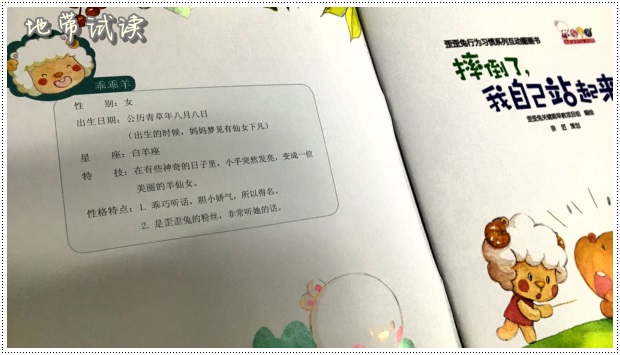 地带试读
乖乖羊
性　别：女
出生日期：公历青草年八月八日
（出生的时候，妈妈梦见有仙女下凡）
星　座：白羊座
特　技：在有些神奇的日子里，小手突然发亮，变成一位
美丽的羊仙女。
性格特点：1. 乖巧听话，胆小娇气，所以得名。
2. 是歪歪兔的粉丝，非常听她的话。
歪歪兔行为习惯系列互动图画书
摔倒了，
我自己站起来